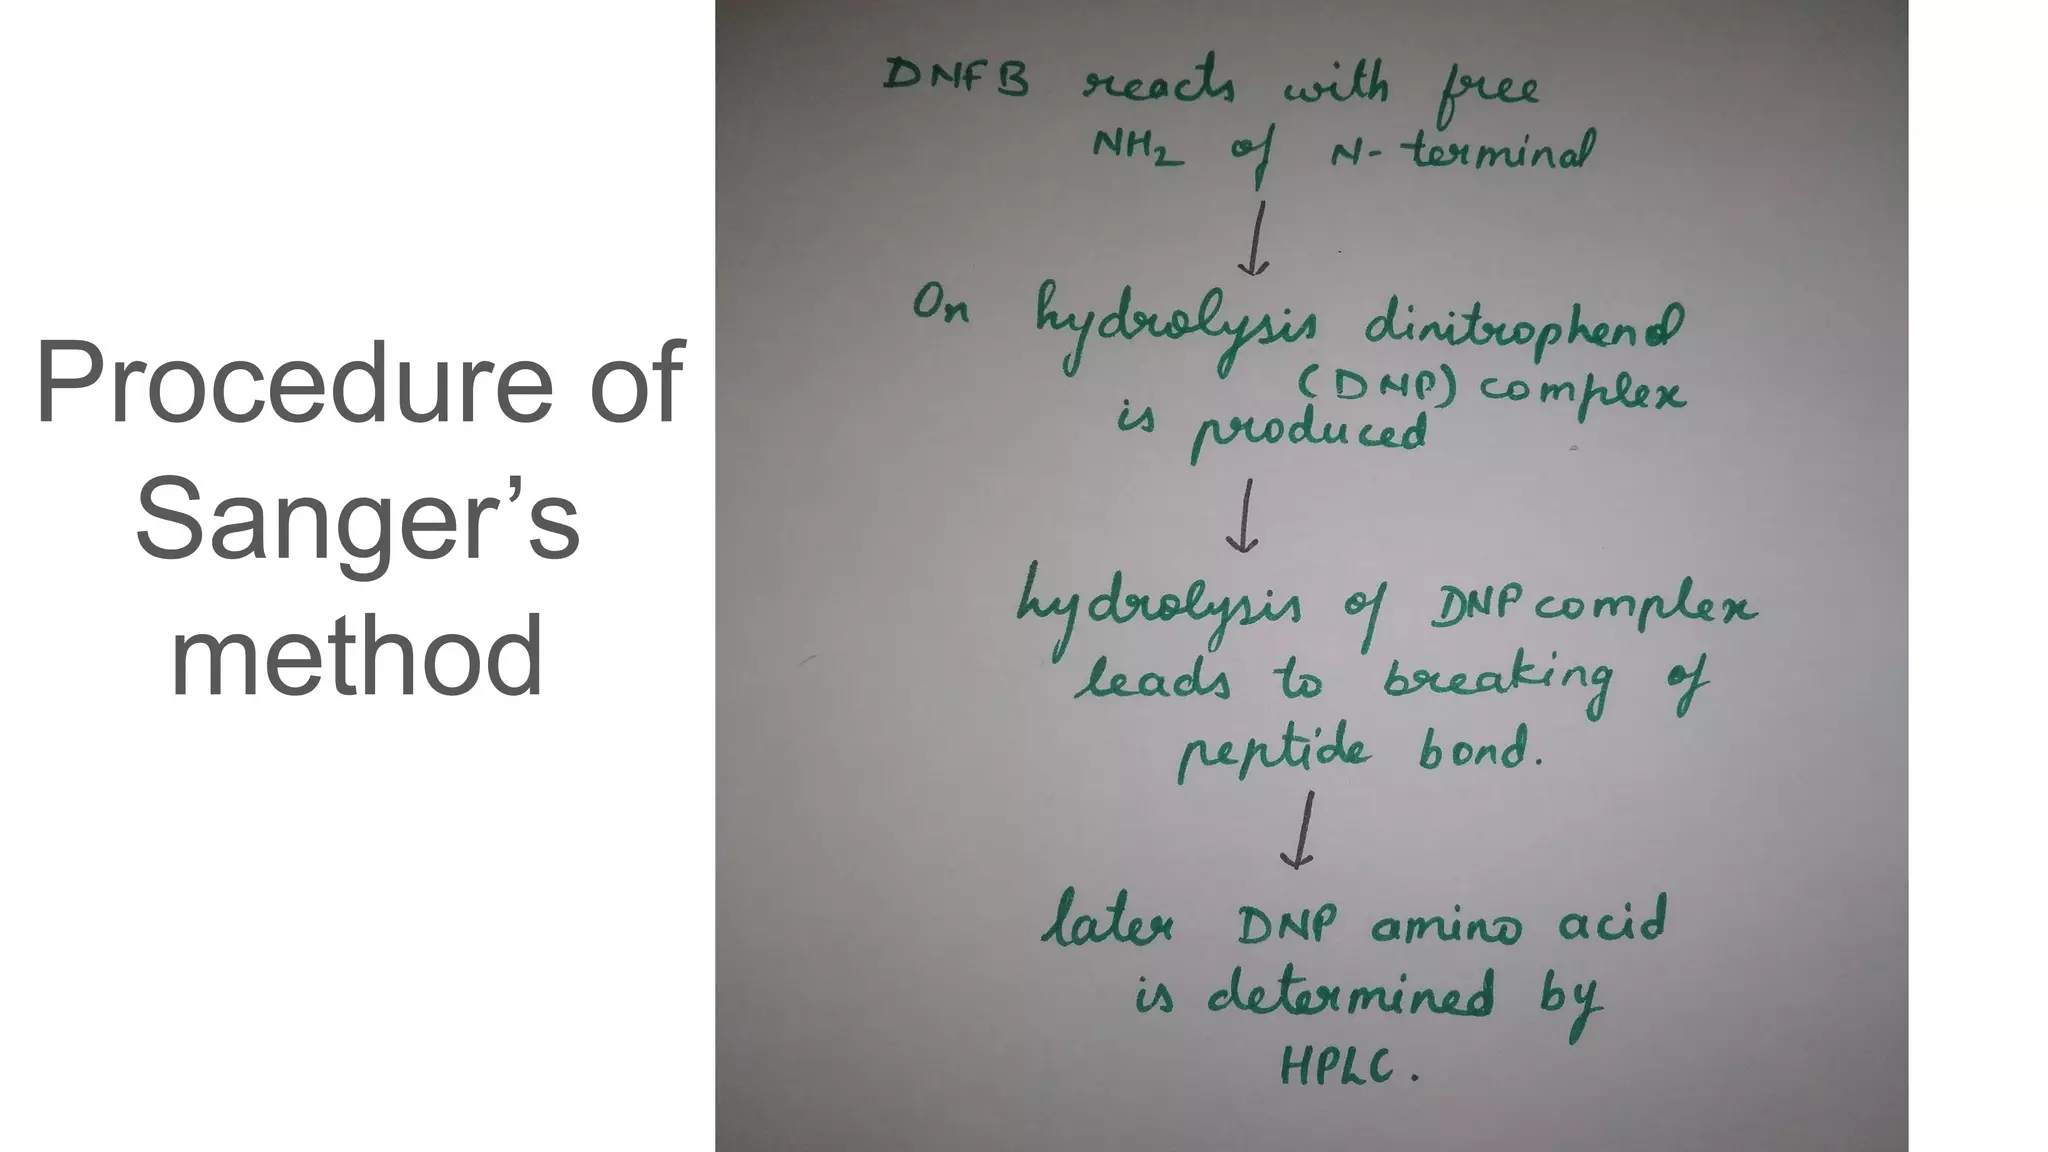 Procedure of
Sanger’s
method
DNFB reacts with free
NH2 of N-terminal
On hydrolysis dinitrophenol
(DNP) complex
is produced
hydrolysis of DNP complex
leads to breaking of
peptide bond.
later DNP amino acid
is determined by
HPLC.